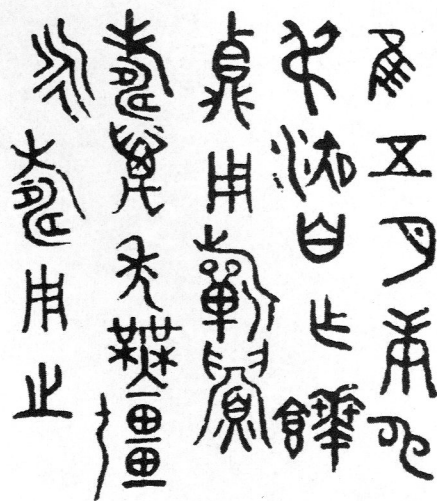 隹五月庚申
自乍饙
鼎用眉
壽萬年無疆
永壽用之